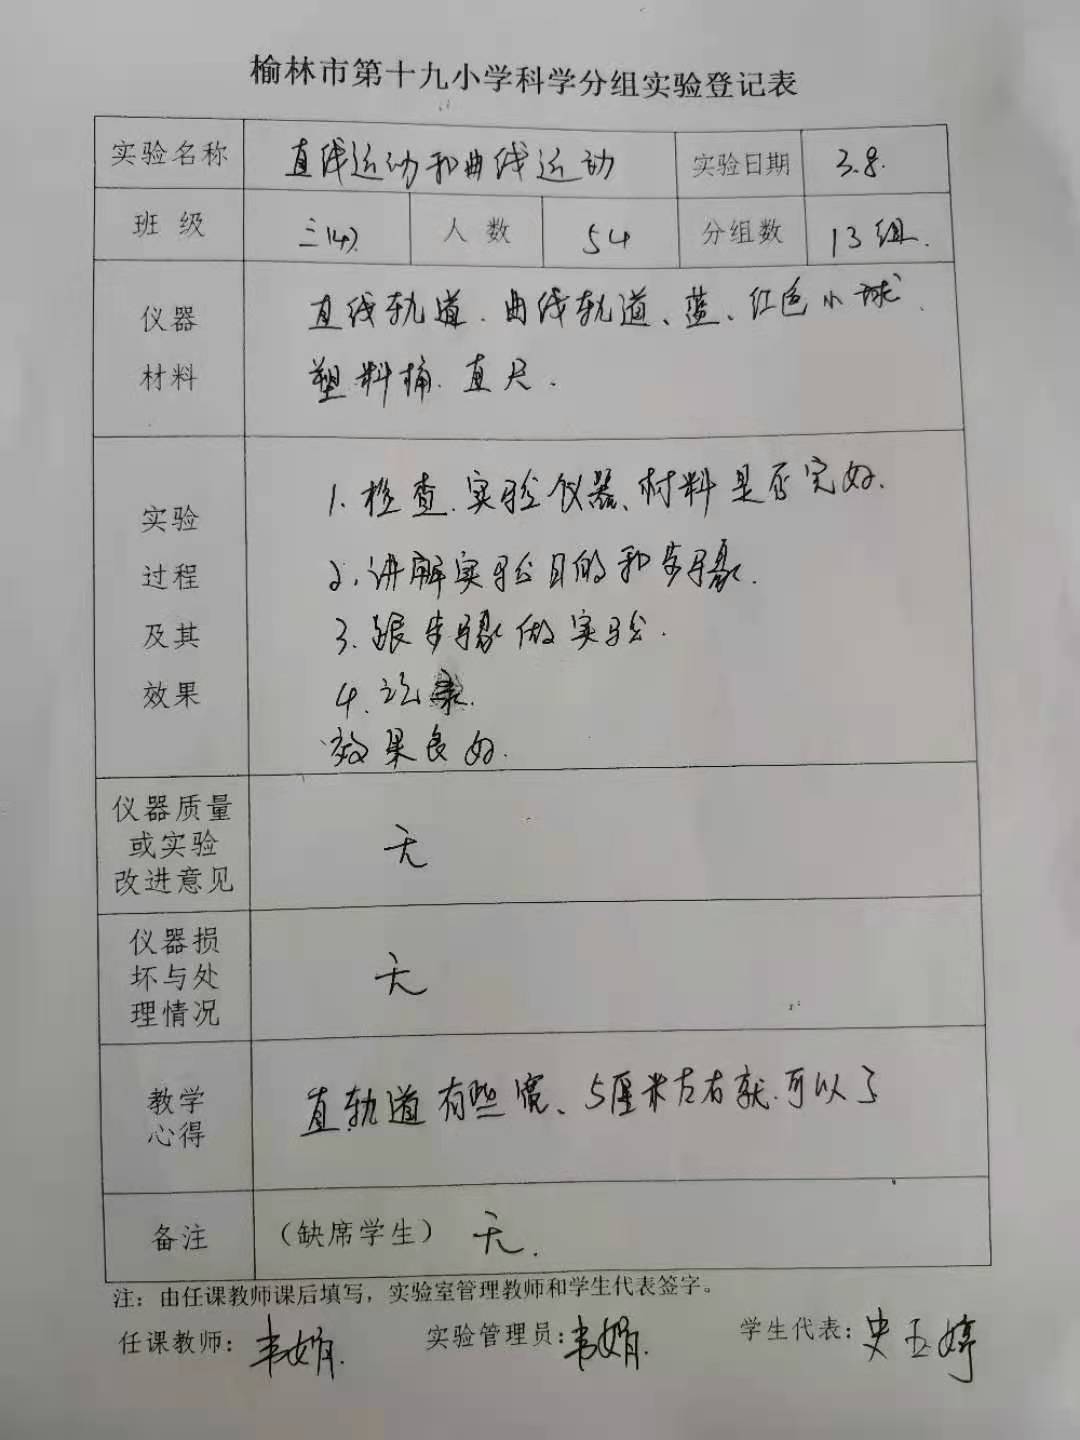 榆林市第十九小学科学分组实验登记表
实验名称 直线运动和曲线运动 实验日期 3.8.
班 级 三(4) 人 数 54 分组数 13组.
仪器
材料
直线轨道、曲线轨道、蓝、红色小球、
塑料桶、直尺.
实验
过程
及其
效果
1. 检查实验仪器、材料是否完好.
2. 讲解实验目的和步骤.
3. 跟步骤做实验.
4. 记录.
效果良好.
仪器质量
或实验
改进意见
无
仪器损
坏与处
理情况
无
教学
心得
直轨道有些宽、5厘米左右就可以了
备注 (缺席学生) 无.
注：由任课教师课后填写，实验室管理教师和学生代表签字。
任课教师：韦娟. 实验管理员：韦娟. 学生代表：史玉婷